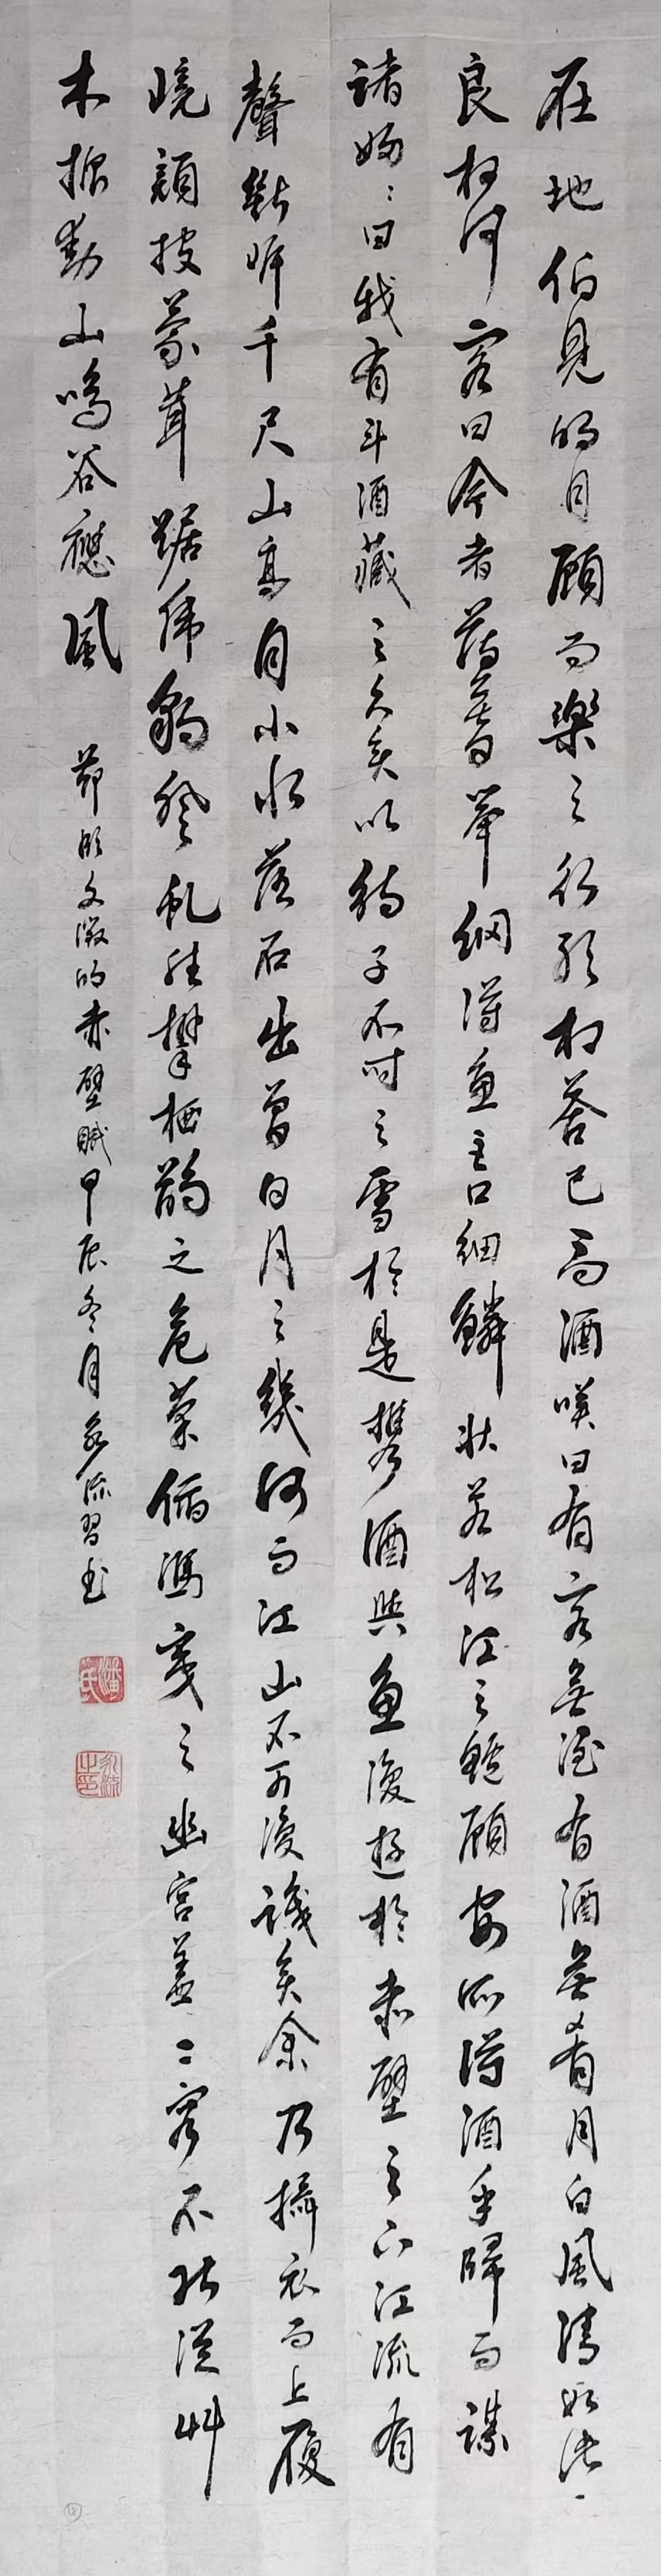 在地仰見明月顧而樂之行歌相答已而酒嘆曰有客無酒有酒無肴月白風清如此
良夜何客曰今者薄暮舉網得魚巨口細鱗狀若松江之鱸顧安所得酒乎歸而謀
諸婦々曰我有斗酒藏之久矣以待子不時之需於是攜酒與魚復遊於赤壁之下江流有
聲斷岸千尺山高月小水落石出曾日月之幾何而江山不可復識矣余乃攝衣而上履
巉巖披蒙茸踞虎豹登虬龍攀栖鶻之危巢俯馮夷之幽宮蓋二客不能從
木振動山鳴谷應風
節臨文徵明赤壁賦甲辰冬月永流習書
潘氏
永流之印